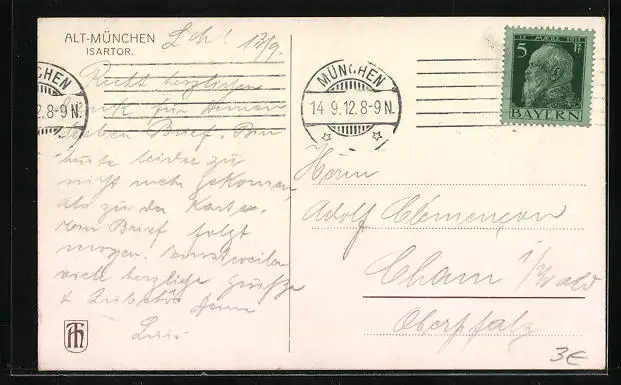 ALT-MÜNCHEN
ISARTOR.
13/9.
Recht herzlichen
Dank für Deinen
lieben Brief. Bin
heute leider zu
nicht mehr gekommen,
als zu der Karte.
Brief folgt
morgen.
viele herzliche Grüße
Deine
CHEN
2.8-9N.
MÜNCHEN
14 9.12.8-9N.
12. MÄRZ 1911
5 Pf
BAYERN
Herrn
Adolf Clémençon
Cham i/Wald
Oberpfalz
3€